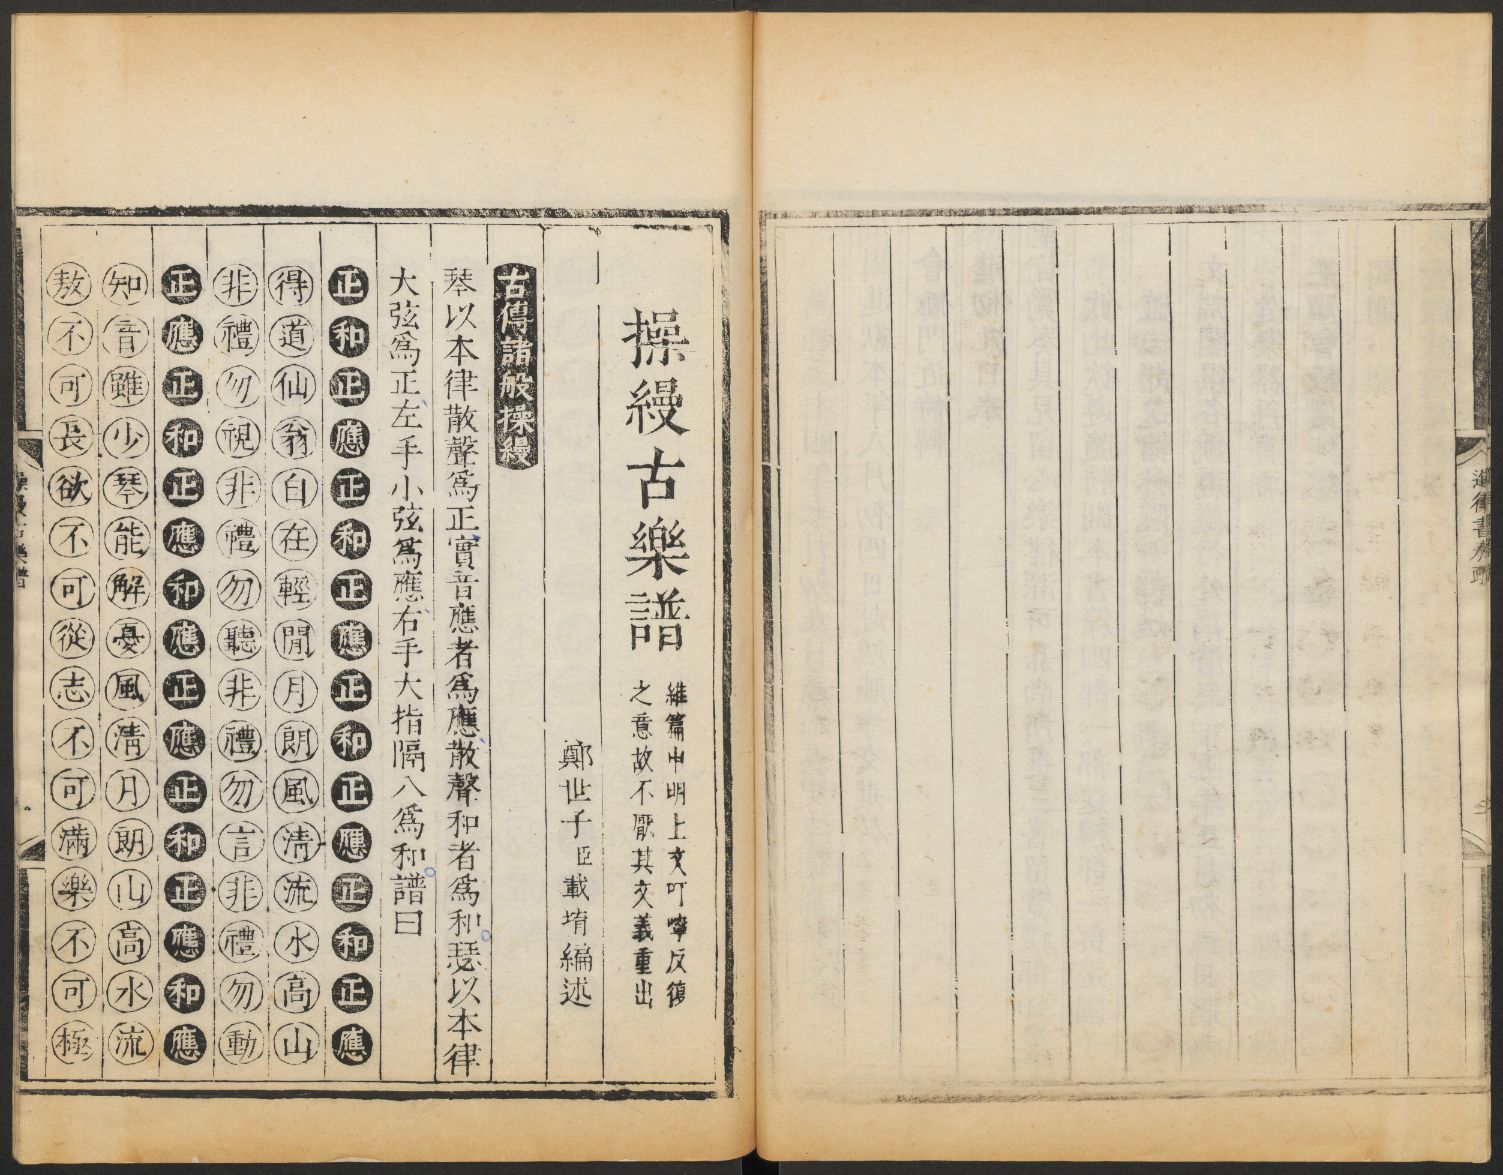 進律書奏疏
操縵古樂譜
維篇中明上文叮嚀反復
之意故不厭其文義重出
鄭世子臣載堉編述
古傳諸般操縵
琴以本律散聲爲正實音應者爲應散聲和者爲和瑟以本律
大弦爲正左手小弦爲應右手大指隔八爲和譜曰
正和正應正和正應正和正應正和正應
得道仙翁自在輕閒月朗風清流水高山
非禮勿視非禮勿聽非禮勿言非禮勿動
正應正和正應和應正應正和正應和應
知音雖少琴能解憂風清月朗山高水流
敖不可長欲不可從志不可滿樂不可極
操縵古樂譜